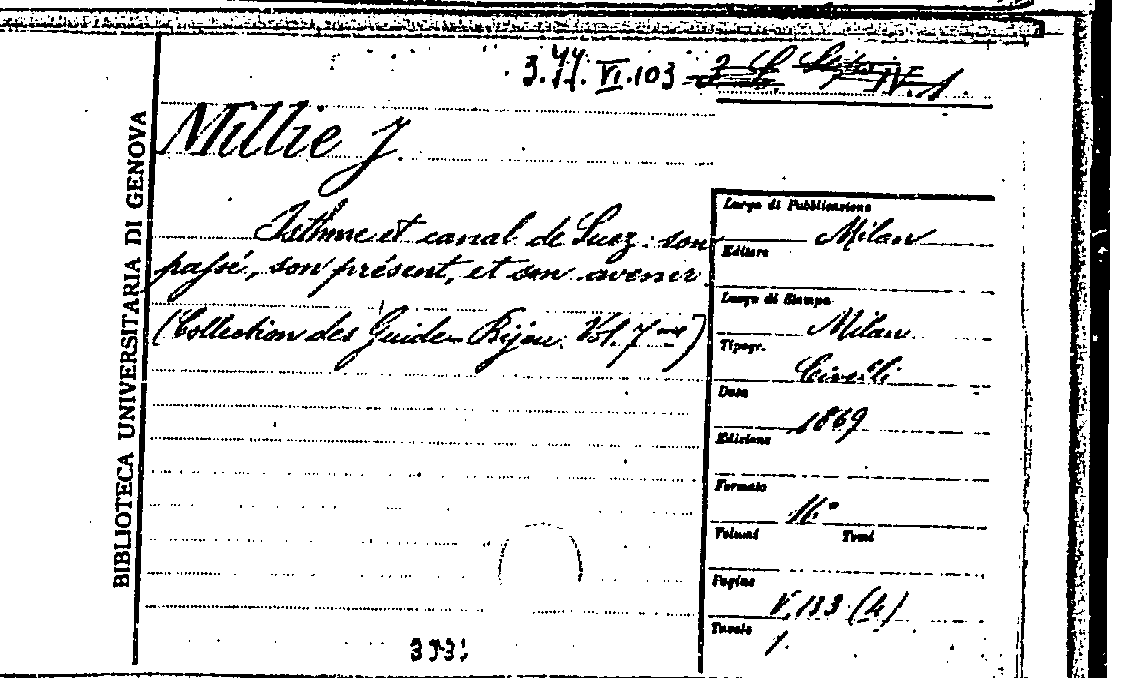 3.YY.VI.103
BIBLIOTECA UNIVERSITARIA DI GENOVA
Millie J.
Isthme et canal de Suez: son
passé, son présent, et son avenir.
(Collection des Guides-Bijou. Vol. 7me)
Luogo di Pubblicazione
Milan
Editore
Luogo di Stampa
Milan
Tipogr.
Civelli
Data
1869
Edizione
Formato
16°
Volumi Tomi
Pagine
V,133 (4)
Tavole
1.